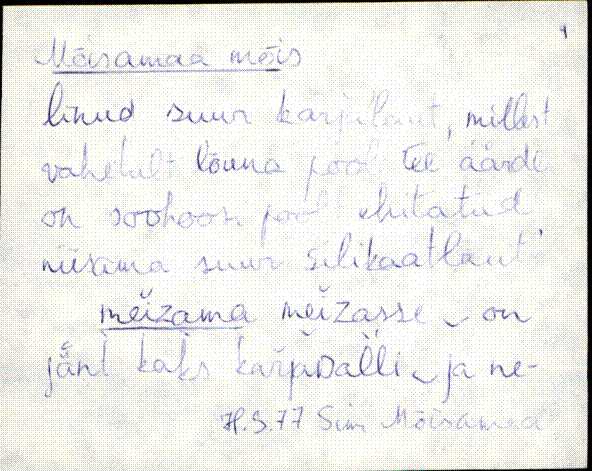 4
Mõisamaa mõis
linud suur karjalaut, millest
vahetult lõuna pool tee äärde
on soohoosi poolt ehitatud
niisama suur silikaatlaut.
mẽĭzama mẽĭzasse on
jä̀nt kaks kařjᴅalli ja ne-
H.S. 77 Sim Mõisamaa